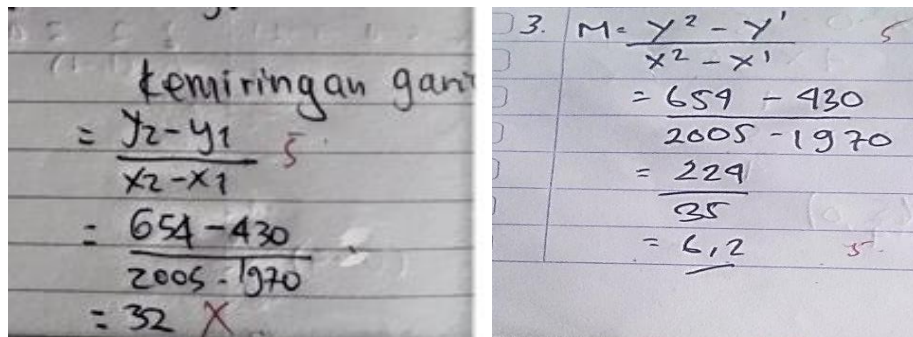 kemiringan garis
= y2 - y1 5
x2 - x1
= 654 - 430
2005 - 1970
= 32 X
3. M = y² - y' 5
x² - x'
= 654 - 430
2005 - 1970
= 224
35
= 6,2 5